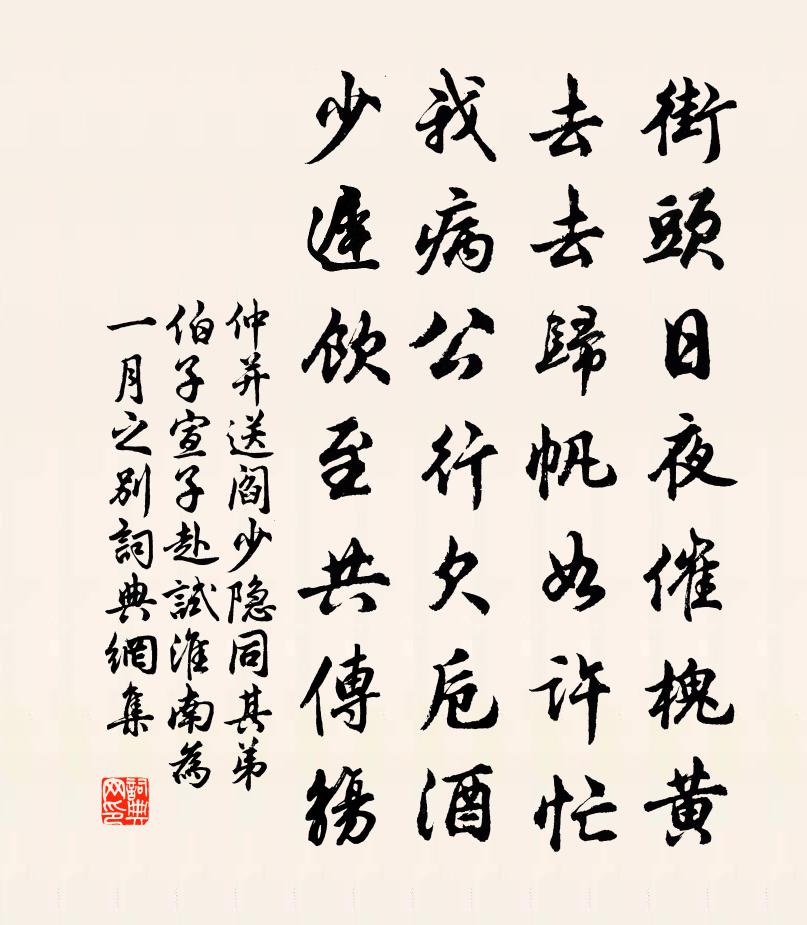 街頭日夜催槐黄
去去歸帆如許忙
我病公行欠卮酒
少遲飲至共傳觴
仲并送閻少隐同其弟
伯子宣子赴試淮南為
一月之别詞典網集
詞典网印